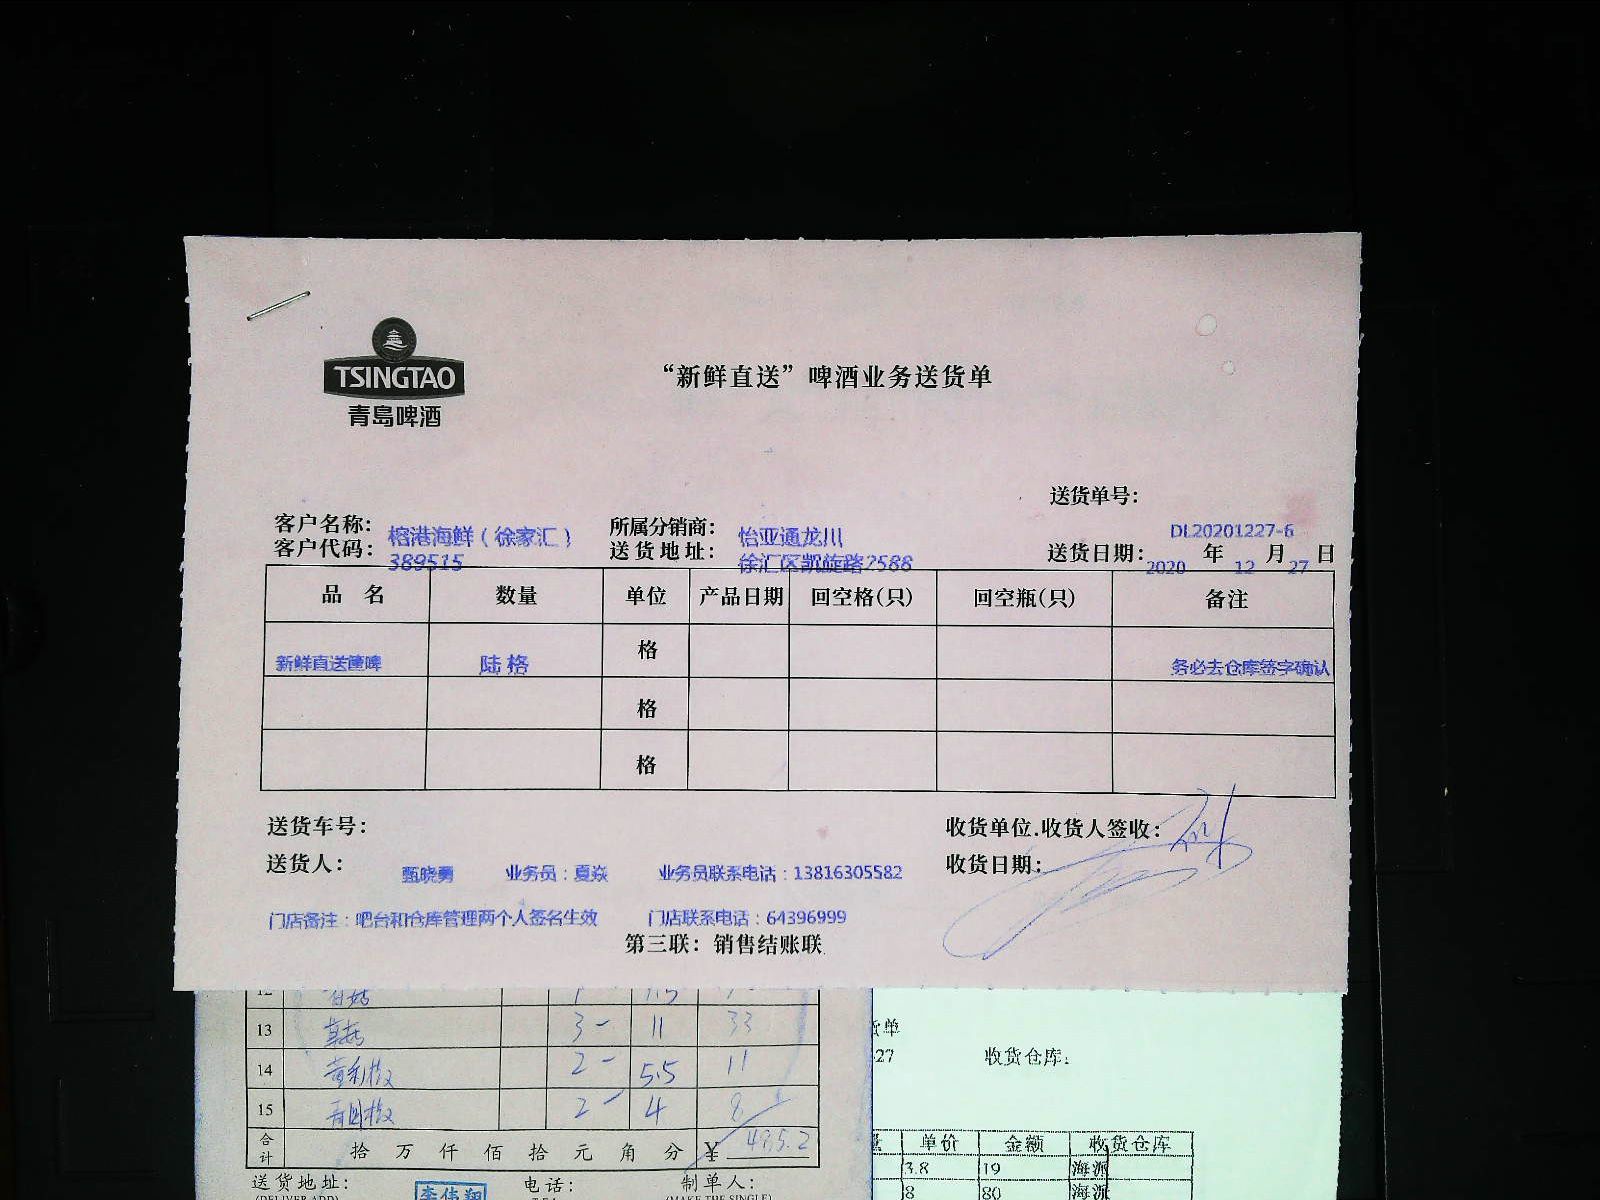 TSINGTAO
青岛啤酒
“新鲜直送”啤酒业务送货单
送货单号：
DL20201227-6
客户名称： 榕港海鲜（徐家汇） 所属分销商： 怡亚通龙川
客户代码： 389515 送货地址： 徐汇区凯旋路2588 送货日期： 2020 年 12 月 27 日
品 名 数量 单位 产品日期 回空格(只) 回空瓶(只) 备注
新鲜直送筐啤 陆格 格 务必去仓库签字确认
格
格
送货车号： 收货单位.收货人签收：
送货人： 甄晓勇 业务员：夏焱 业务员联系电话：13816305582 收货日期：
门店备注：吧台和仓库管理两个人签名生效 门店联系电话：64396999
第三联：销售结账联
12
13 3- 11 33
14 2- 5.5 11
15 2- 4 8
合计 拾 万 仟 佰 拾 元 角 分 ￥ 495.2
送货地址： 电话： 制单人：
(DELIVER ADD) (MAKE THE SINGLE)
李伟翔
货单
27 收货仓库：
单价 金额 收货仓库
3.8 19 海派
8 80 海派